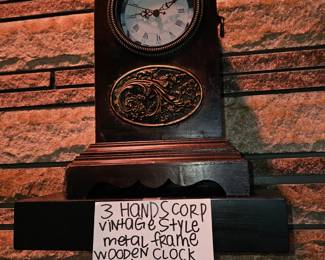 3 HANDS CORP
VINTAGE STYLE
metal frame
WOODEN CLOCK